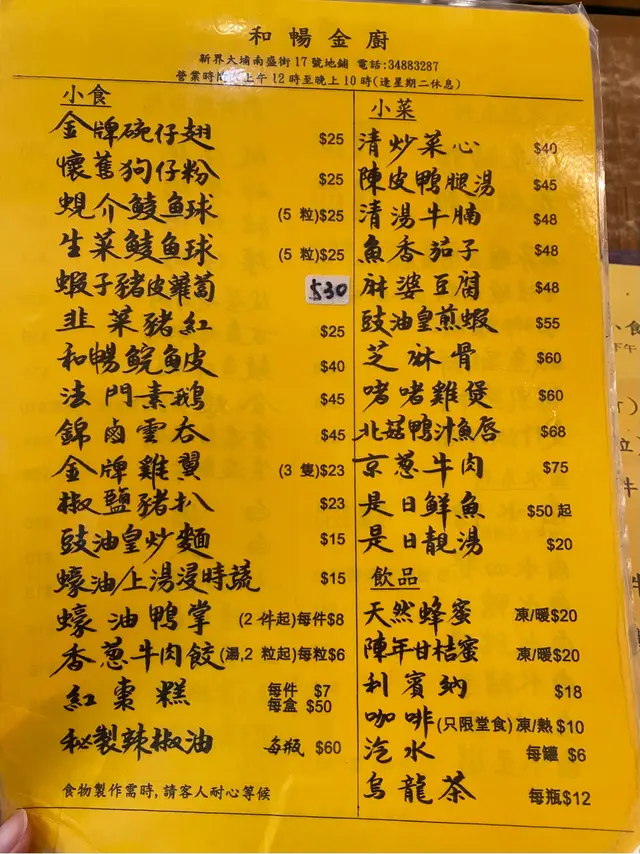 和暢金廚
新界大埔南盛街17號地鋪 電話:34883287
營業時 上午12時至晚上10時(逢星期二休息)
小食
金牌碗仔翅 $25
懷舊狗仔粉 $25
蜆介鯪魚球 (5 粒)$25
生菜鯪魚球 (5 粒)$25
蝦子豬皮蘿蔔 $30
韭菜豬紅 $25
和暢鯇魚皮 $40
法門素鵝 $45
錦鹵雲吞 $45
金牌雞翼 (3 隻)$23
椒鹽豬扒 $23
豉油皇炒麵 $15
蠔油/上湯浸時蔬 $15
蠔油鴨掌 (2 件起)每件$8
香蔥牛肉餃(湯,2 粒起)每粒$6
紅棗糕 每件 $7
每盒 $50
秘製辣椒油 每瓶 $60
食物製作需時,請客人耐心等候
小菜
清炒菜心 $40
陳皮鴨腿湯 $45
清湯牛腩 $48
魚香茄子 $48
麻婆豆腐 $48
豉油皇煎蝦 $55
芝麻骨 $60
啫啫雞煲 $60
北菇鴨汁魚唇 $68
京蔥牛肉 $75
是日鮮魚 $50 起
是日靚湯 $20
飲品
天然蜂蜜 凍/暖$20
陳年甘桔蜜 凍/暖$20
利賓納 $18
咖啡(只限堂食)凍/熱 $10
汽水 每罐 $6
烏龍茶 每瓶$12
小食
下午